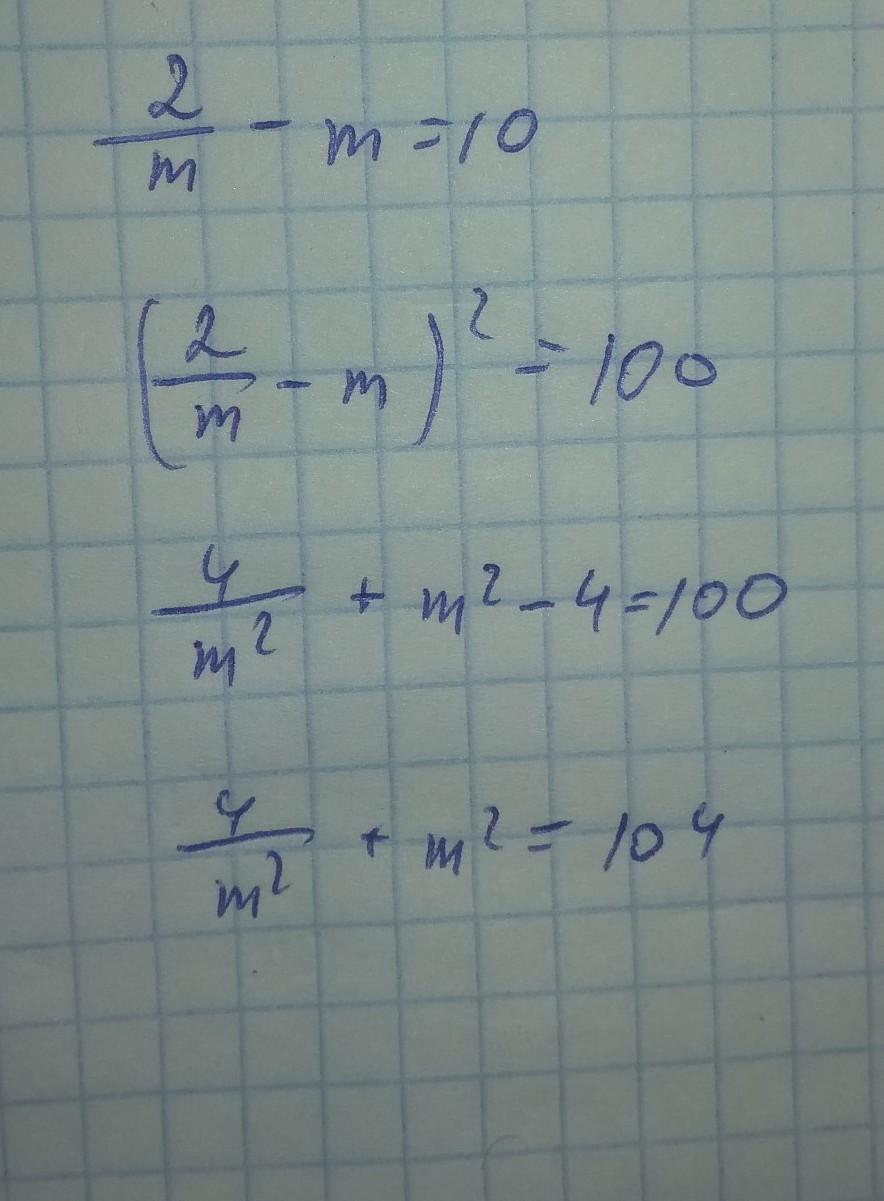 2/m - m = 10
(2/m - m)² = 100
4/m² + m² - 4 = 100
4/m² + m² = 104